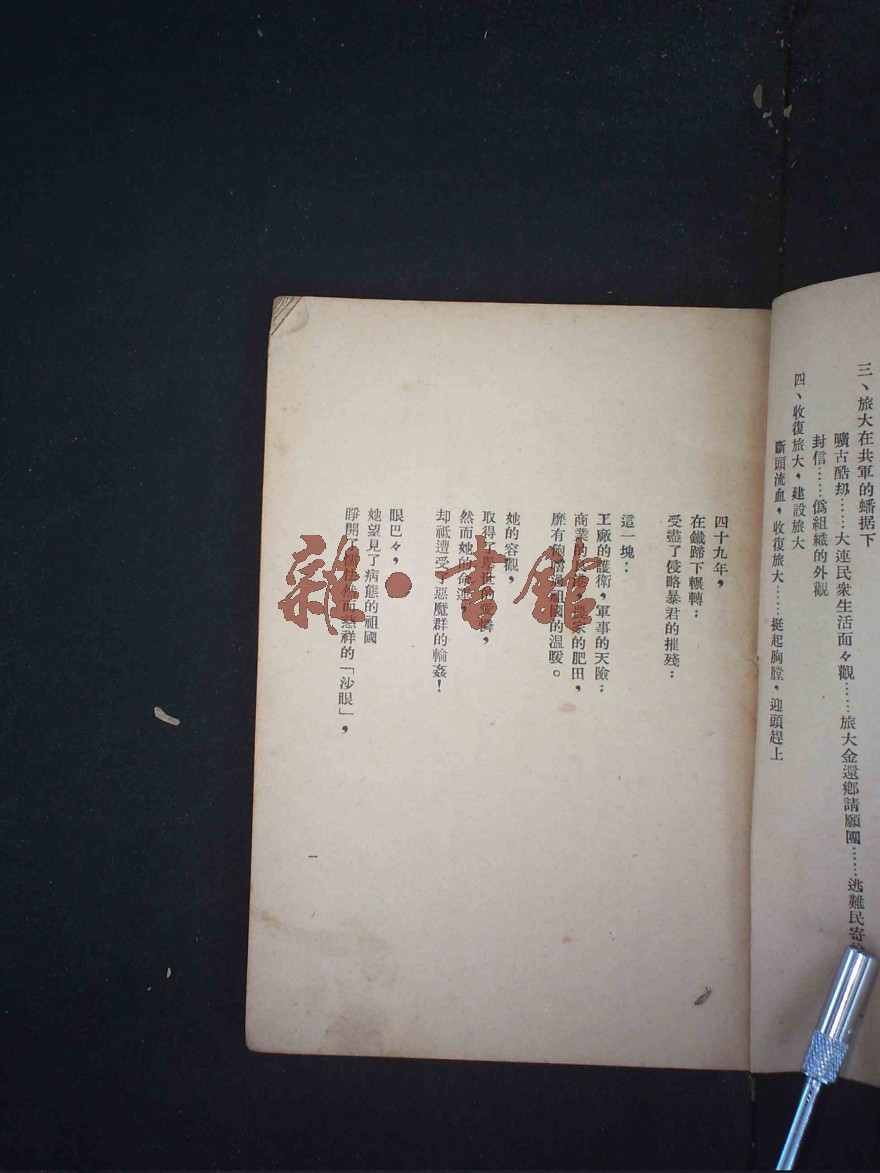 三、旅大在共軍的蟠据下
曠古酷刼……大連民衆生活面々觀……旅大金還鄉請願團……逃難民寄
封信……僞組織的外觀
四、收復旅大，建設旅大
斷頭流血，收復旅大……挺起胸膛，迎頭趕上
四十九年，
在鐵蹄下輾轉：
受盡了侵略暴君的摧殘：
這一塊：
王廠的護衛，軍事的天險：
商業的良港，農家的肥田，
靡有 祖國的溫暖。
她的容觀，
取得了舉世的愛憐，
然而她的命運，
却祗遭受了惡魔群的輪姦！
眼巴々，
她望見了病態的祖國
睜開了 然而慈祥的「沙眼」，
一
雜·書館